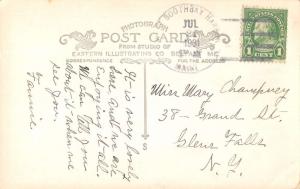 PHOTOGRAPH
POST CARD
FROM STUDIO OF
EASTERN ILLUSTRATING CO. BELFAST, ME.
CORRESPONDENCE
FOR THE ADDRESS
BOOTHBAY HAR
JUL
MAINE
1 CENT 1
It is very lovely
here and we are
enjoying it all.
We can tell you
about it when we
see you.
Fannie.
Miss Mary Champney
38- Grand St.
Glens Falls
N.Y.